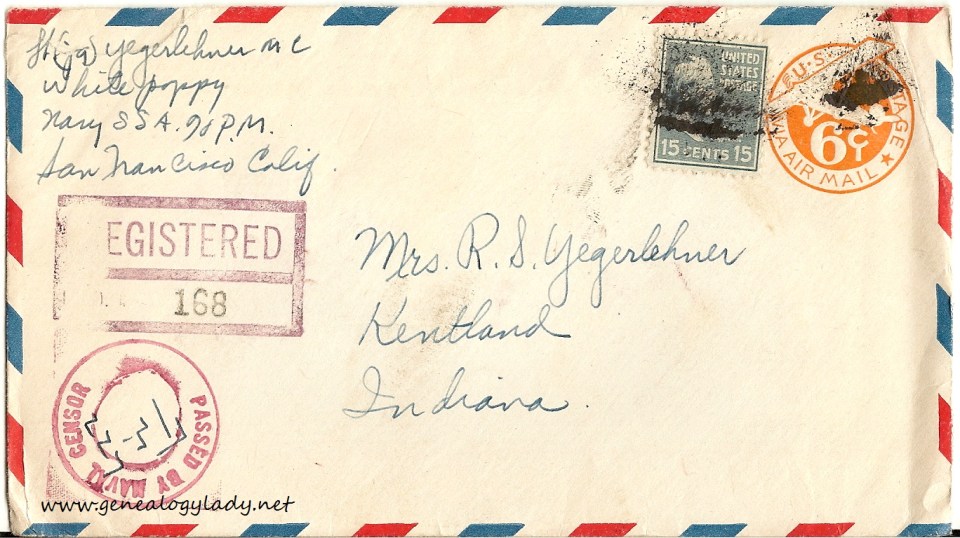 Yegerlehner M C
White Poppy
Navy
San Francisco Calif.
UNITED
STATES
POSTAGE
15 CENTS 15
U.S. POSTAGE
6¢
VIA AIR MAIL
EGISTERED
168
Mrs. R. S. Yegerlehner
Kentland
Indiana.
PASSED BY NAVAL CENSOR
www.genealogylady.net